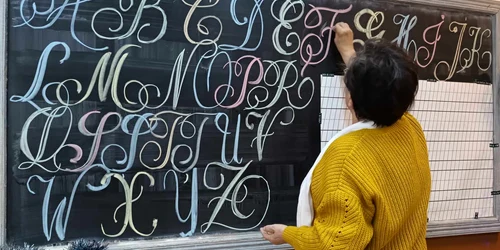 A B C D E F G H I J K
L M N O P R
Q S T U V
W X Y Z